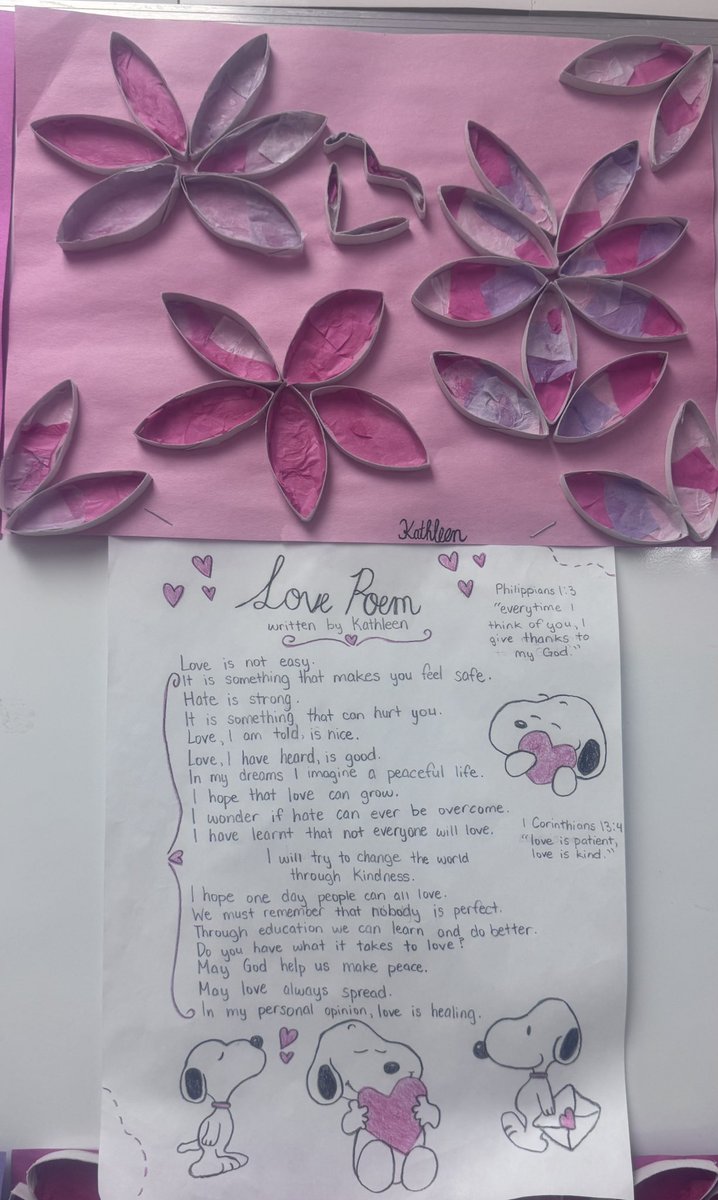 Kathleen
Love Poem
written by Kathleen
Philippians 1:3
"everytime I
think of you, I
give thanks to
my God."
Love is not easy.
It is something that makes you feel safe.
Hate is strong.
It is something that can hurt you.
Love, I am told, is nice.
Love, I have heard, is good.
In my dreams I imagine a peaceful life.
I hope that love can grow.
I wonder if hate can ever be overcome.
I have learnt that not everyone will love.
1 Corinthians 13:4
"love is patient,
love is kind."
I will try to change the world
through Kindness.
I hope one day people can all love.
We must remember that nobody is perfect.
Through education we can learn and do better.
Do you have what it takes to love?
May God help us make peace.
May love always spread.
In my personal opinion, love is healing.